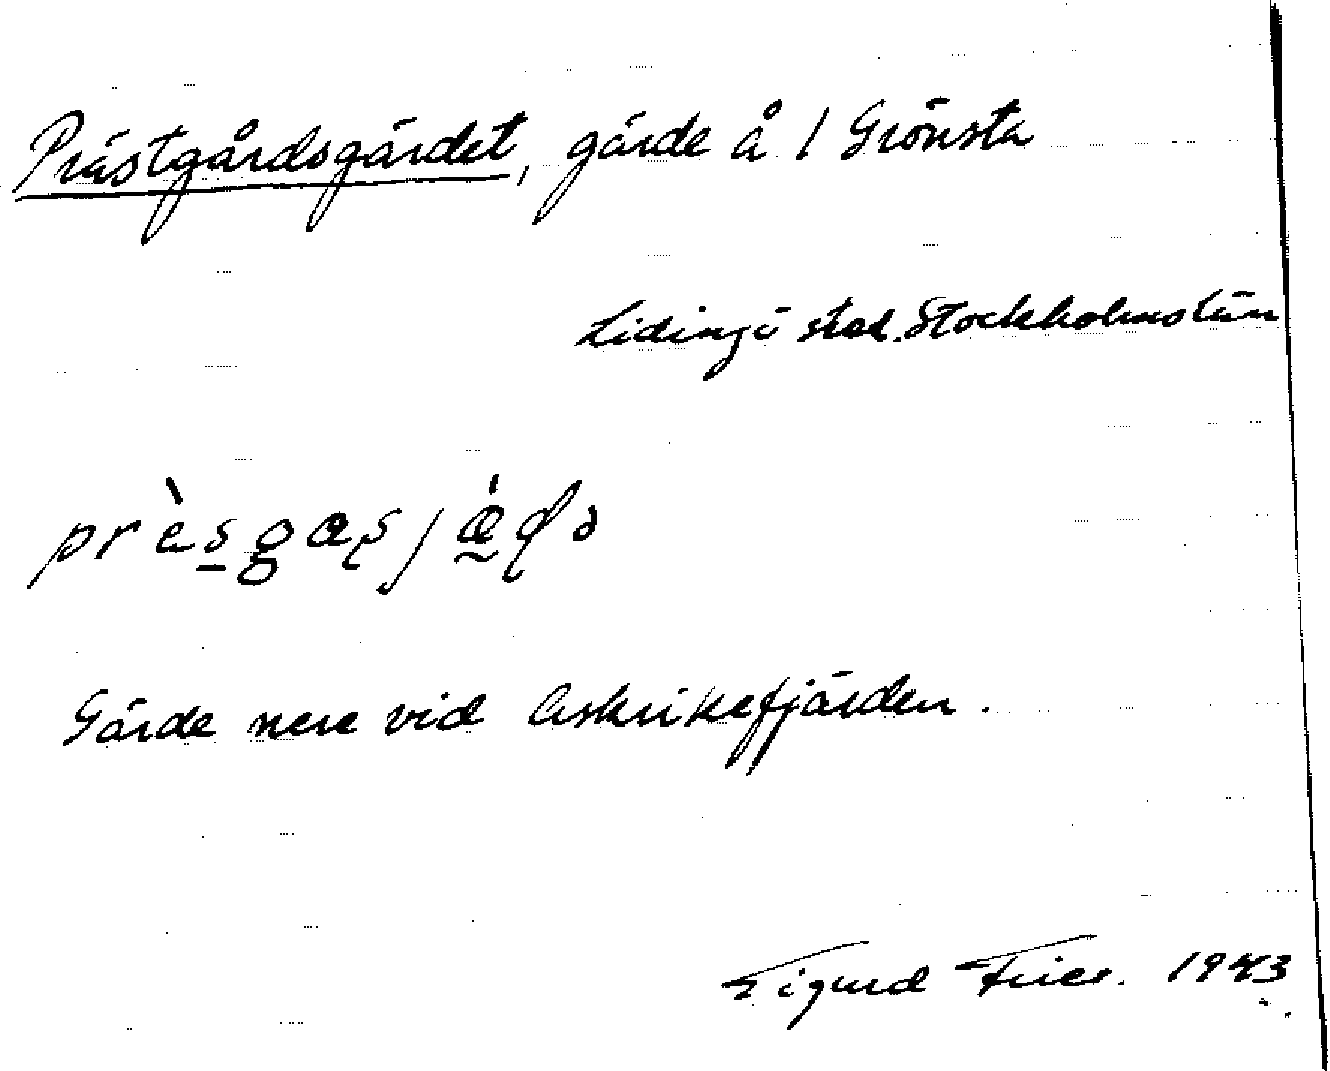 Prästgårdsgärdet, gärde å 1 Grönsta
Lidingö stad. Stockholms län
Gärde nere vid Askrikefjärden.
Sigurd Fries. 1943